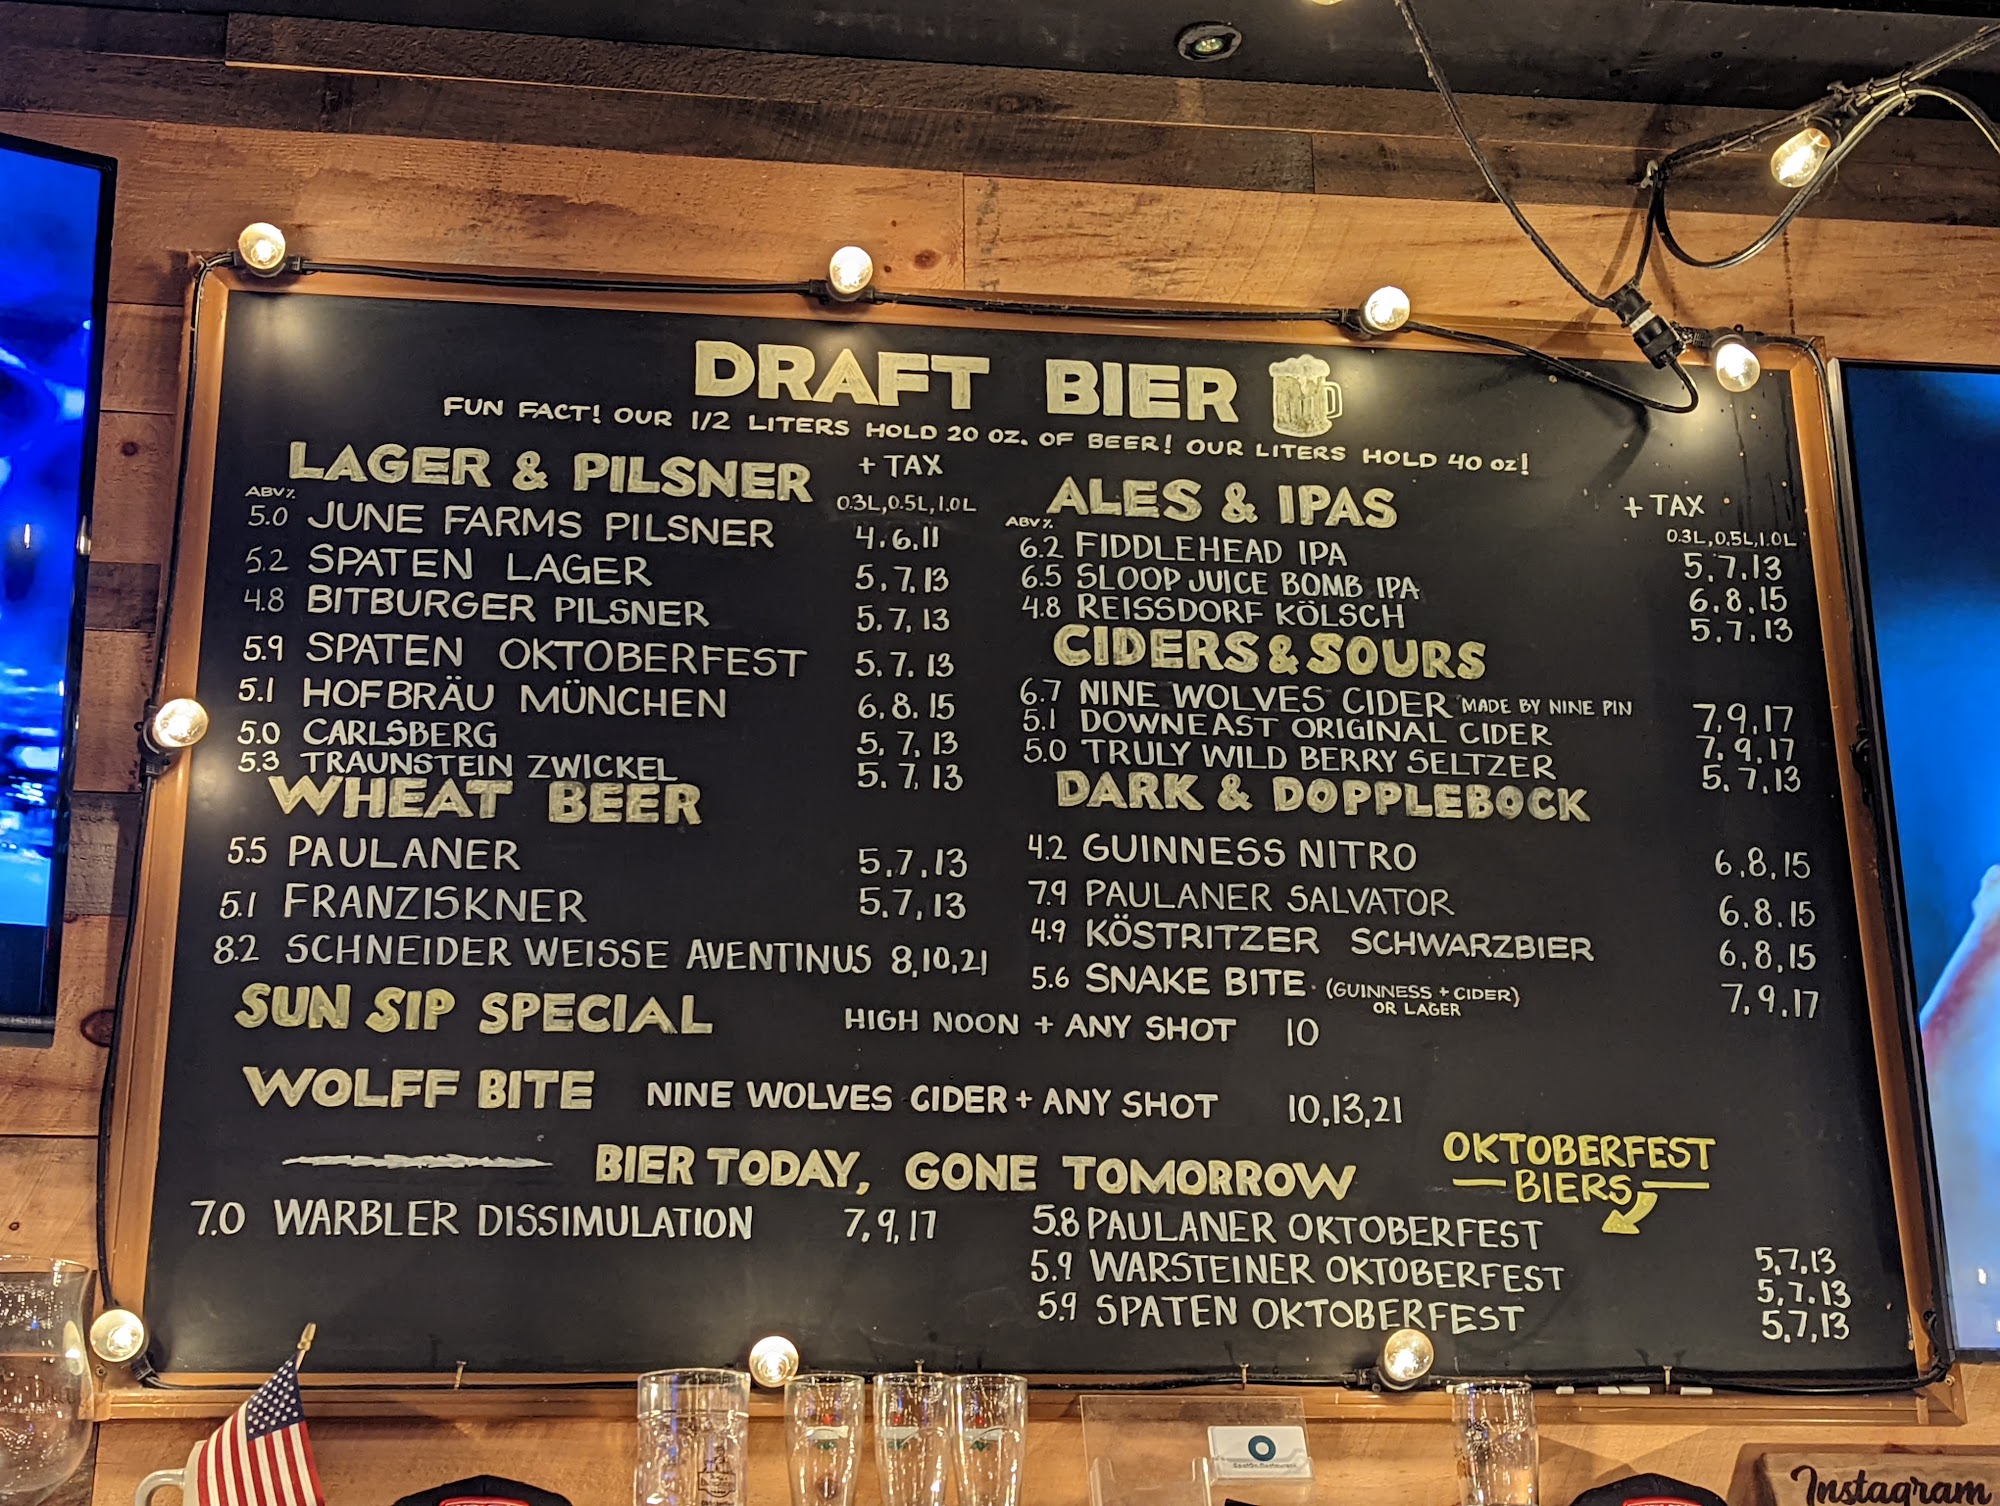 DRAFT BIER
FUN FACT! OUR 1/2 LITERS HOLD 20 OZ. OF BEER! OUR LITERS HOLD 40 OZ!
LAGER & PILSNER + TAX
ABV% 0.3L,0.5L,1.0L
5.0 JUNE FARMS PILSNER 4.6.11
5.2 SPATEN LAGER 5.7.13
4.8 BITBURGER PILSNER 5.7.13
5.9 SPATEN OKTOBERFEST 5.7.13
5.1 HOFBRÄU MÜNCHEN 6.8.15
5.0 CARLSBERG 5,7,13
5.3 TRAUNSTEIN ZWICKEL 5.7,13
WHEAT BEER
5.5 PAULANER 5,7,13
5.1 FRANZISKNER 5.7,13
8.2 SCHNEIDER WEISSE AVENTINUS 8,10,21
ALES & IPAS + TAX
ABV% 0.3L,0.5L,1.0L
6.2 FIDDLEHEAD IPA 5.7.13
6.5 SLOOP JUICE BOMB IPA 6.8.15
4.8 REISSDORF KÖLSCH 5.7.13
CIDERS & SOURS
6.7 NINE WOLVES CIDER MADE BY NINE PIN 7,9,17
5.1 DOWNEAST ORIGINAL CIDER 7,9,17
5.0 TRULY WILD BERRY SELTZER 5.7,13
DARK & DOPPLEBOCK
4.2 GUINNESS NITRO 6,8,15
7.9 PAULANER SALVATOR 6.8.15
4.9 KÖSTRITZER SCHWARZBIER 6,8,15
5.6 SNAKE BITE (GUINNESS + CIDER) 7,9,17
OR LAGER
SUN SIP SPECIAL HIGH NOON + ANY SHOT 10
WOLFF BITE NINE WOLVES CIDER + ANY SHOT 10,13,21
BIER TODAY, GONE TOMORROW
7.0 WARBLER DISSIMULATION 7,9,17
OKTOBERFEST
BIERS
5.8 PAULANER OKTOBERFEST 5,7,13
5.9 WARSTEINER OKTOBERFEST 5,7.13
5.9 SPATEN OKTOBERFEST 5,7,13
Instagram